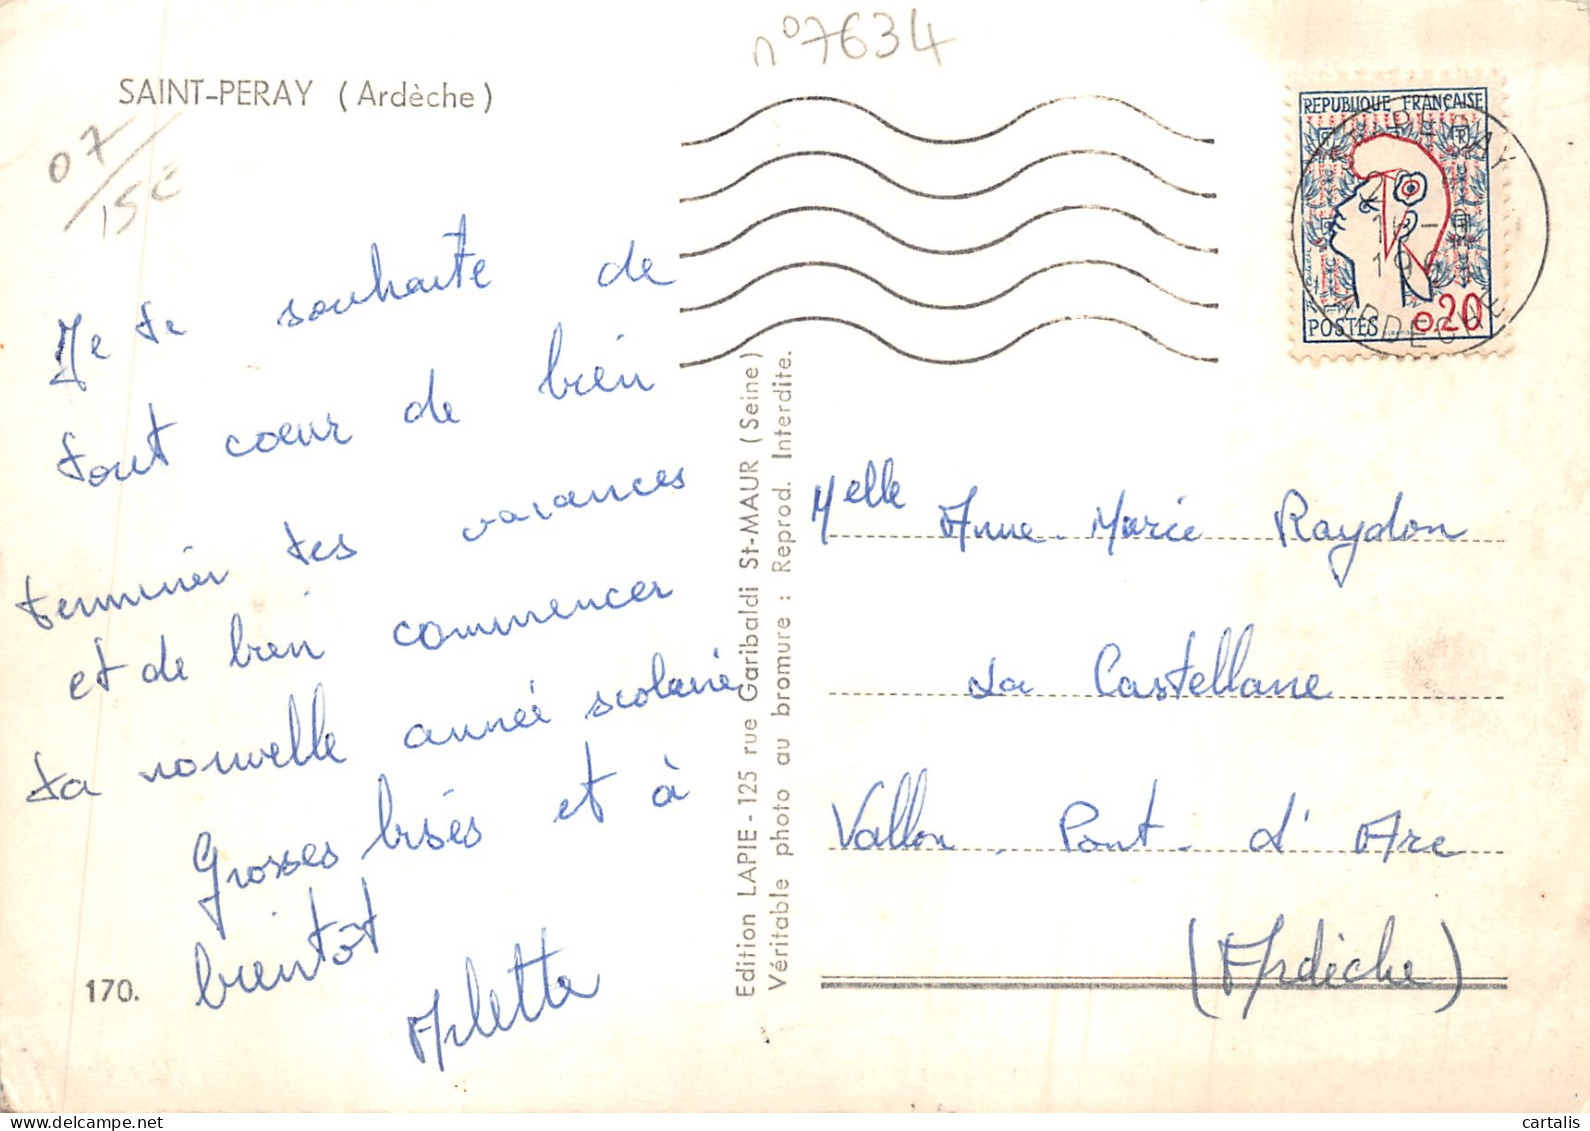 n° 7634
SAINT-PERAY (Ardèche)
07/15€
REPUBLIQUE FRANÇAISE
POSTES 0.20
ARDECHE
Je te souhaite de
tout cœur de bien
terminer tes vacances
et de bien commencer
ta nouvelle année scolaire
Grosses bises et à
bientôt
Arlette
170.
Edition LAPIE - 125 rue Garibaldi St-MAUR (Seine)
Véritable photo au bromure : Reprod. Interdite.
Melle Anne-Marie Raydon
La Castellane
Vallon-Pont-d'Arc
(Ardèche)
cartalis
www.delcampe.net